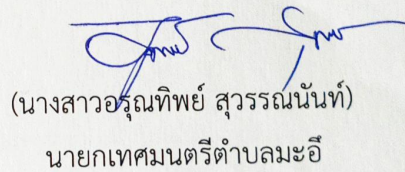 (นางสาวอรุณทิพย์ สุวรรณนันท์)
นายกเทศมนตรีตำบลมะอึ